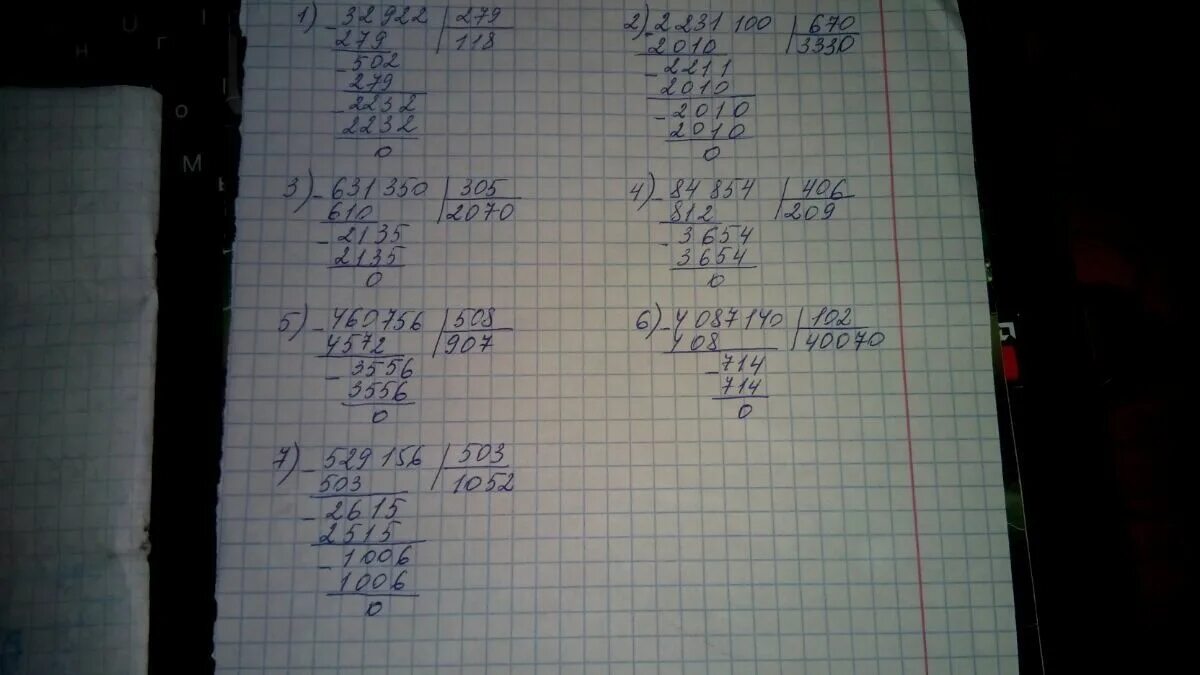 1) - 32922 | 279
279 | 118
- 502
279
- 2232
2232
0
2) - 2231 100 | 670
2010 | 3330
- 2211
2010
- 2010
2010
0
3) - 631 350 | 305
610 | 2070
- 2135
2135
0
4) - 84 854 | 406
812 | 209
- 3654
3654
0
5) - 460756 | 508
4572 | 907
- 3556
3556
0
6) - 4 087 140 | 102
408 | 40070
- 714
714
0
7) - 529 156 | 503
503 | 1052
- 2615
2515
- 1006
1006
0
Н
Г
О
М
Ь